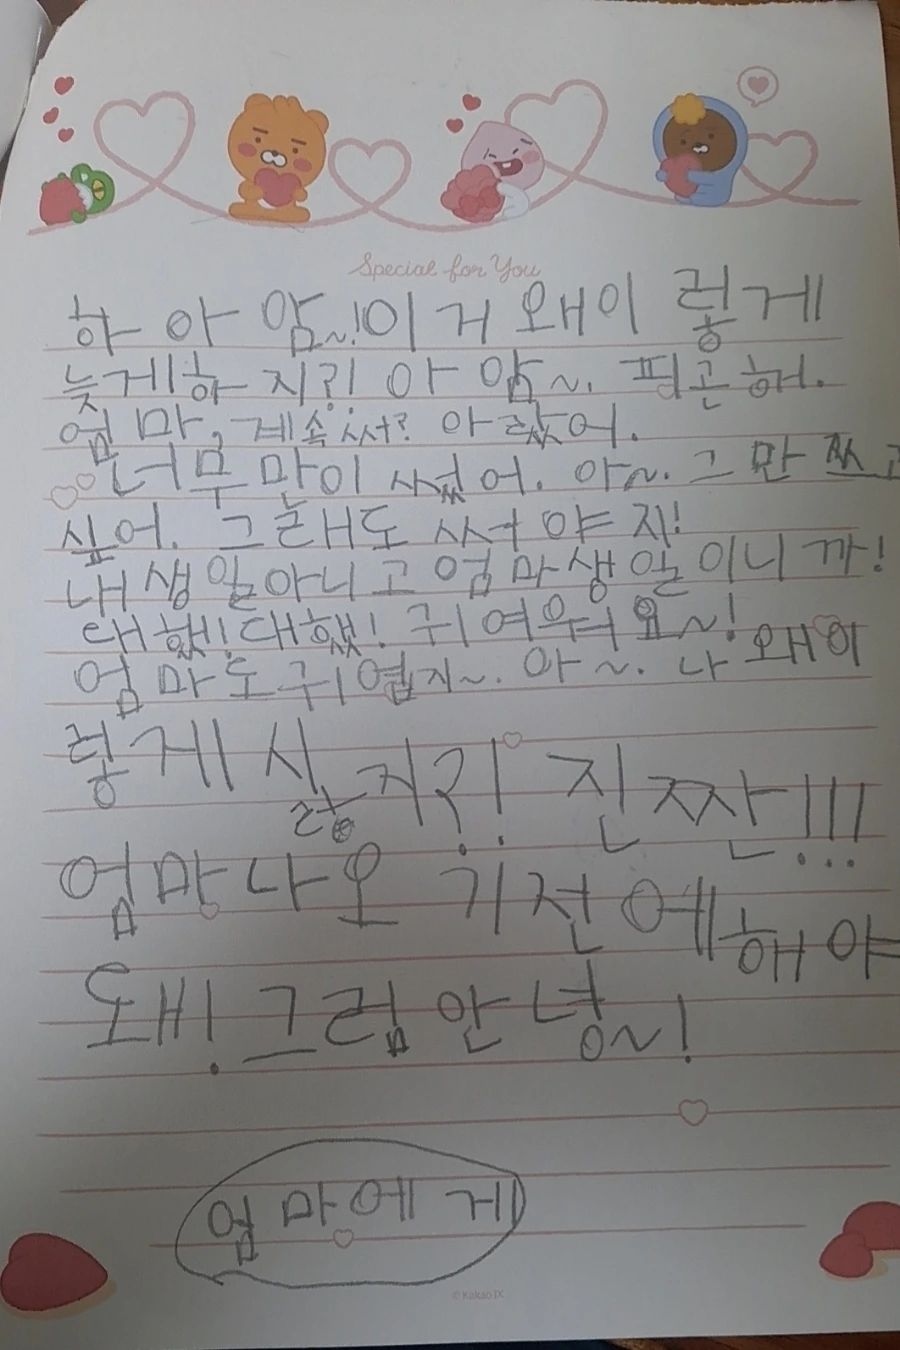 Special for You
하 아 암~!이 거 왜이 렇게
늦게하 지?! 아 암~. 피곤해.
엄마, 계속써? 아랐어.
너무 만이 썼어. 아~. 그 만 쓰고
싶어. 그래도 써야 지!
내생일아니고 엄마생일이니까!
대했! 대했! 귀여워요~!
엄마도귀엽지~. 아~. 나 왜이
렇게 사랑지?! 진짠!!!
엄마나오 기전에해야
돼! 그럼 안녕~!
엄마에게
© Kakao IX